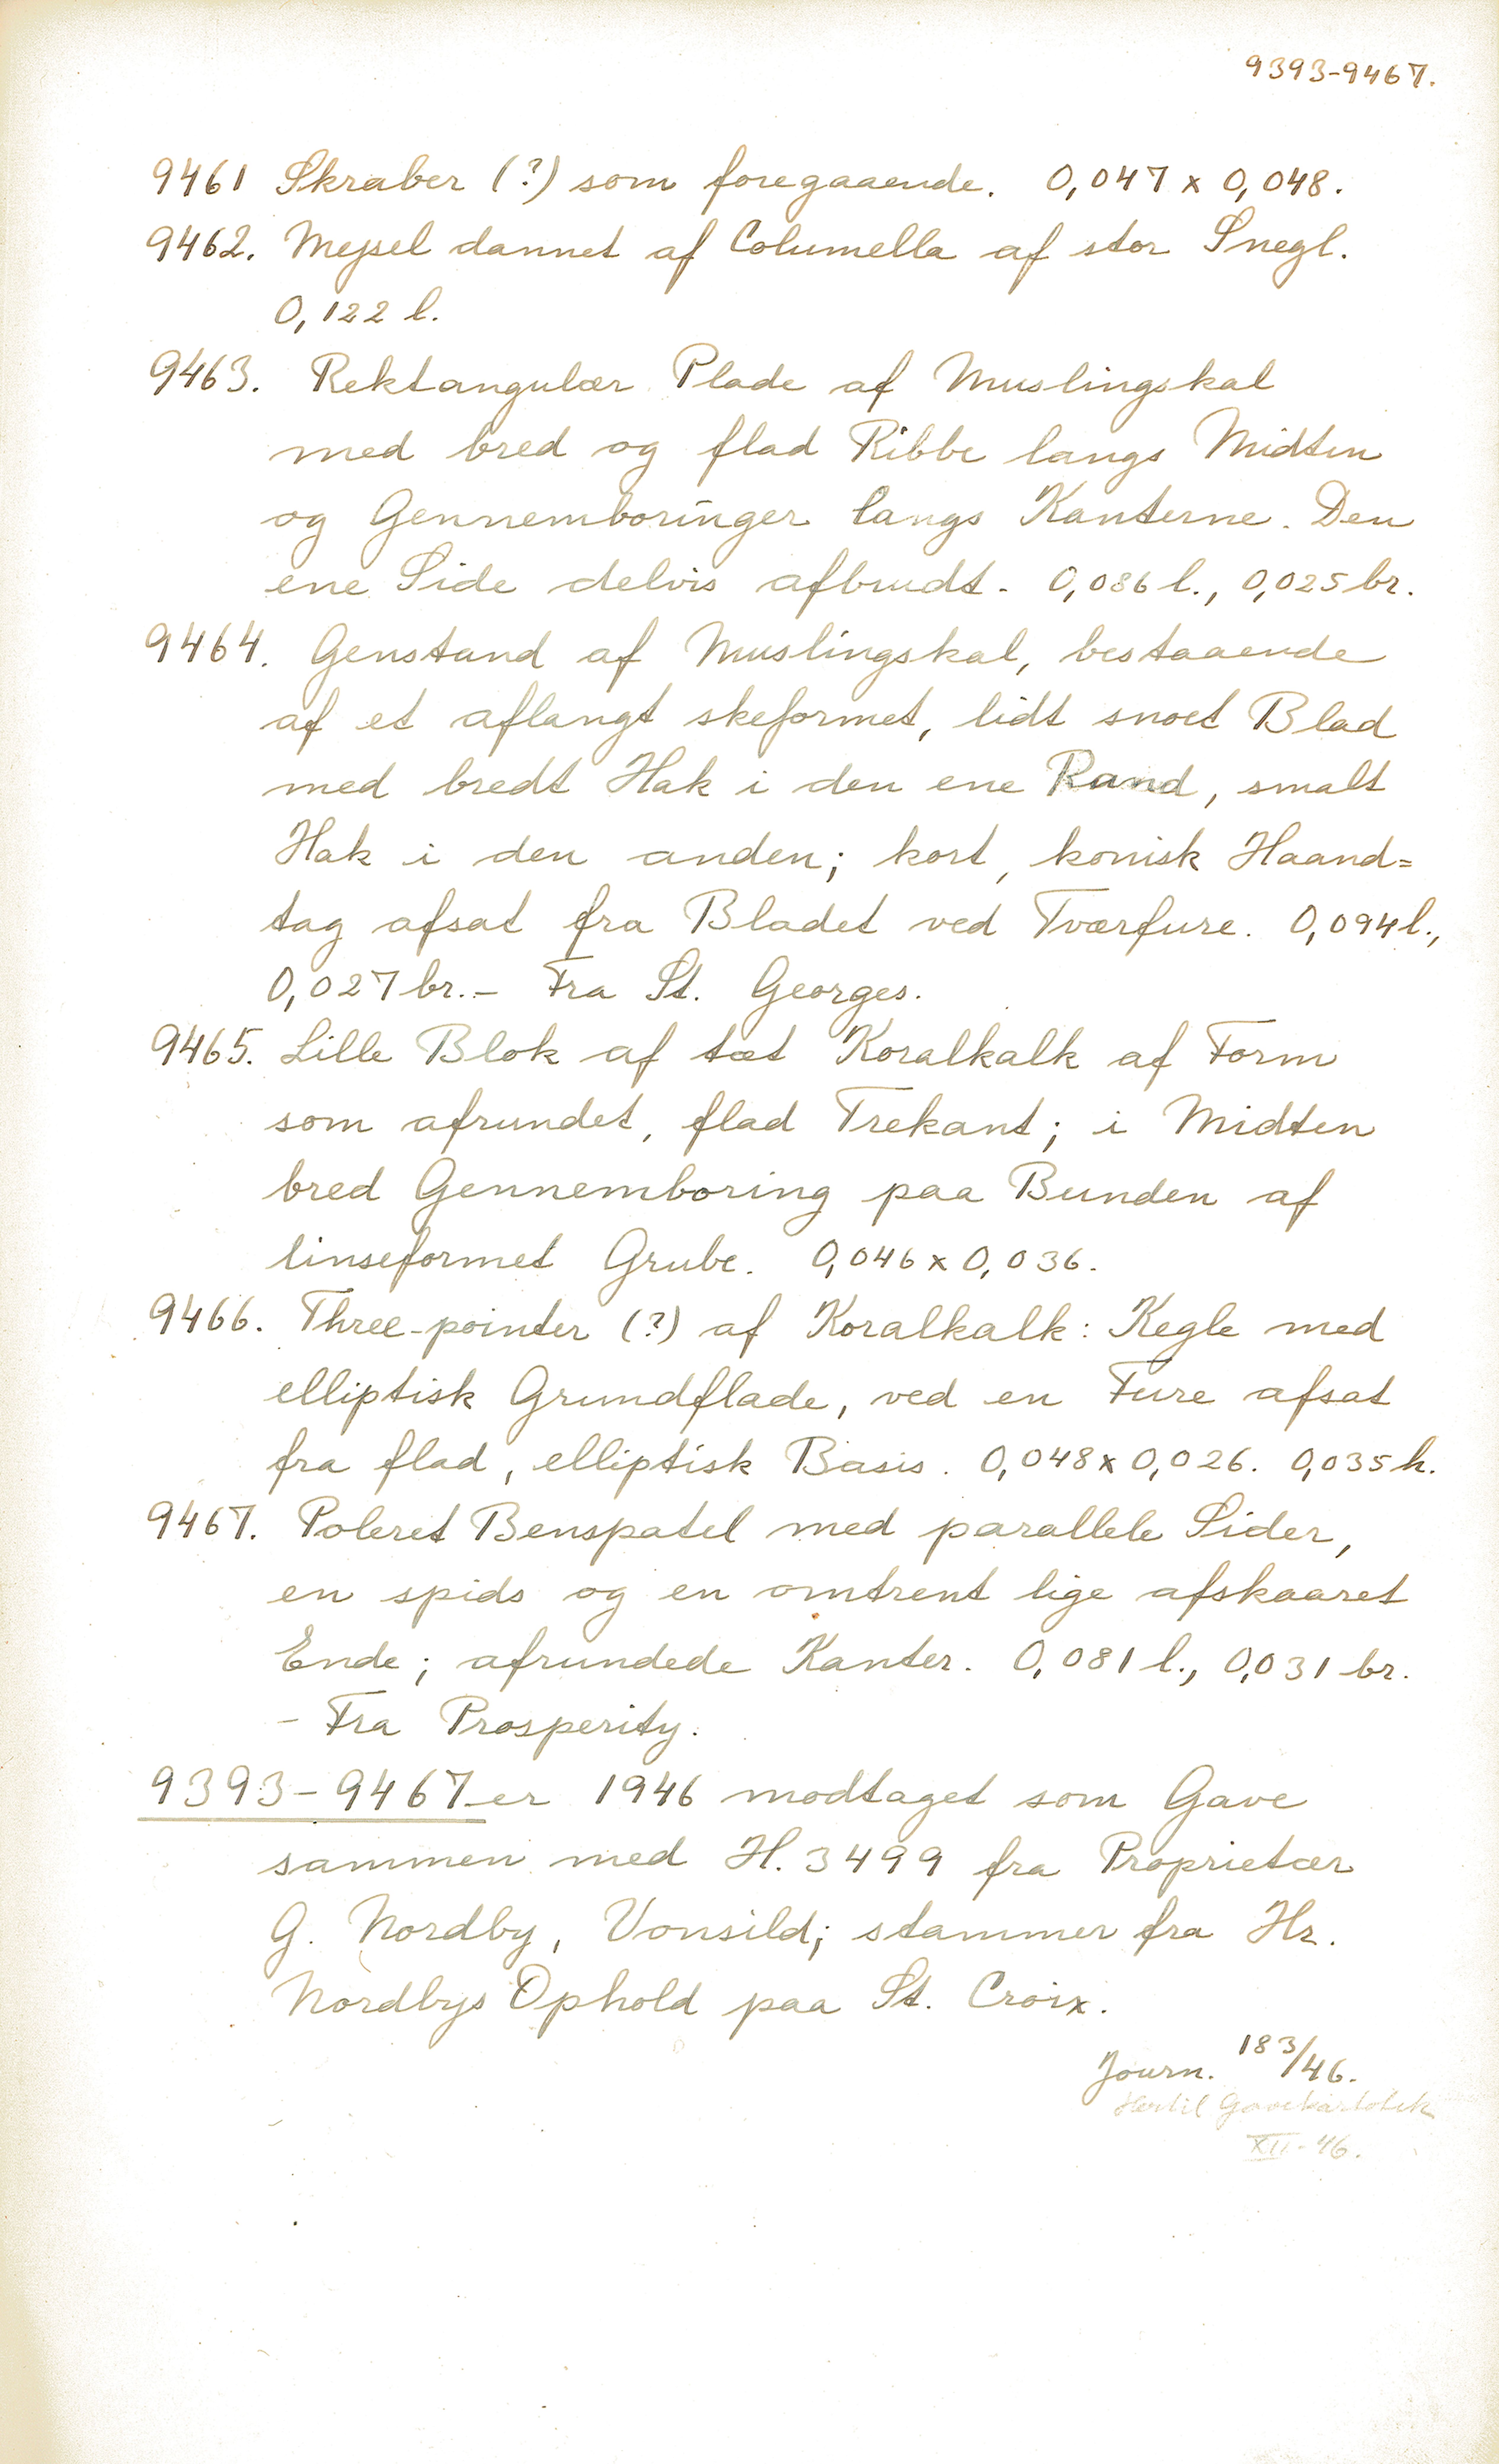 9393-9467.
9461 Skraber (?) som foregaaende. 0,047 x 0,048.
9462. Mejsel dannet af Columella af stor Snegl.
0,122 l.
9463. Rektangulær Plade af Muslingskal
med bred og flad Ribbe langs Midten
og Gennemboringer langs Kanterne. Den
ene Side delvis afbrudt. 0,086 l., 0,025 br.
9464. Genstand af Muslingskal, bestaaende
af et aflangt skeformet, lidt snoet Blad
med bredt Hak i den ene Rand, smalt
Hak i den anden; kort, konisk Haand=
tag afsat fra Bladet ved Tværfure. 0,094 l.,
0,027 br. – Fra St. Georges.
9465. Lille Blok af tæt Koralkalk af Form
som afrundet, flad Trekant; i Midten
bred Gennemboring paa Bunden af
linseformet Grube. 0,046 x 0,036.
9466. Three-pointer (?) af Koralkalk: Kegle med
elliptisk Grundflade, ved en Fure afsat
fra flad, elliptisk Basis. 0,048 x 0,026. 0,035 h.
9467. Poleret Benspatel med parallele Sider,
en spids og en omtrent lige afskaaret
Ende; afrundede Kanter. 0,081 l., 0,031 br.
– Fra Prosperity.
9393-9467 er 1946 modtaget som Gave
sammen med H. 3499 fra Proprietær
G. Nordby, Vonsild; stammer fra Hr.
Nordbys Ophold paa St. Croix.
Journ. 183/46.
Hertil Gavekartotek
XII-46.